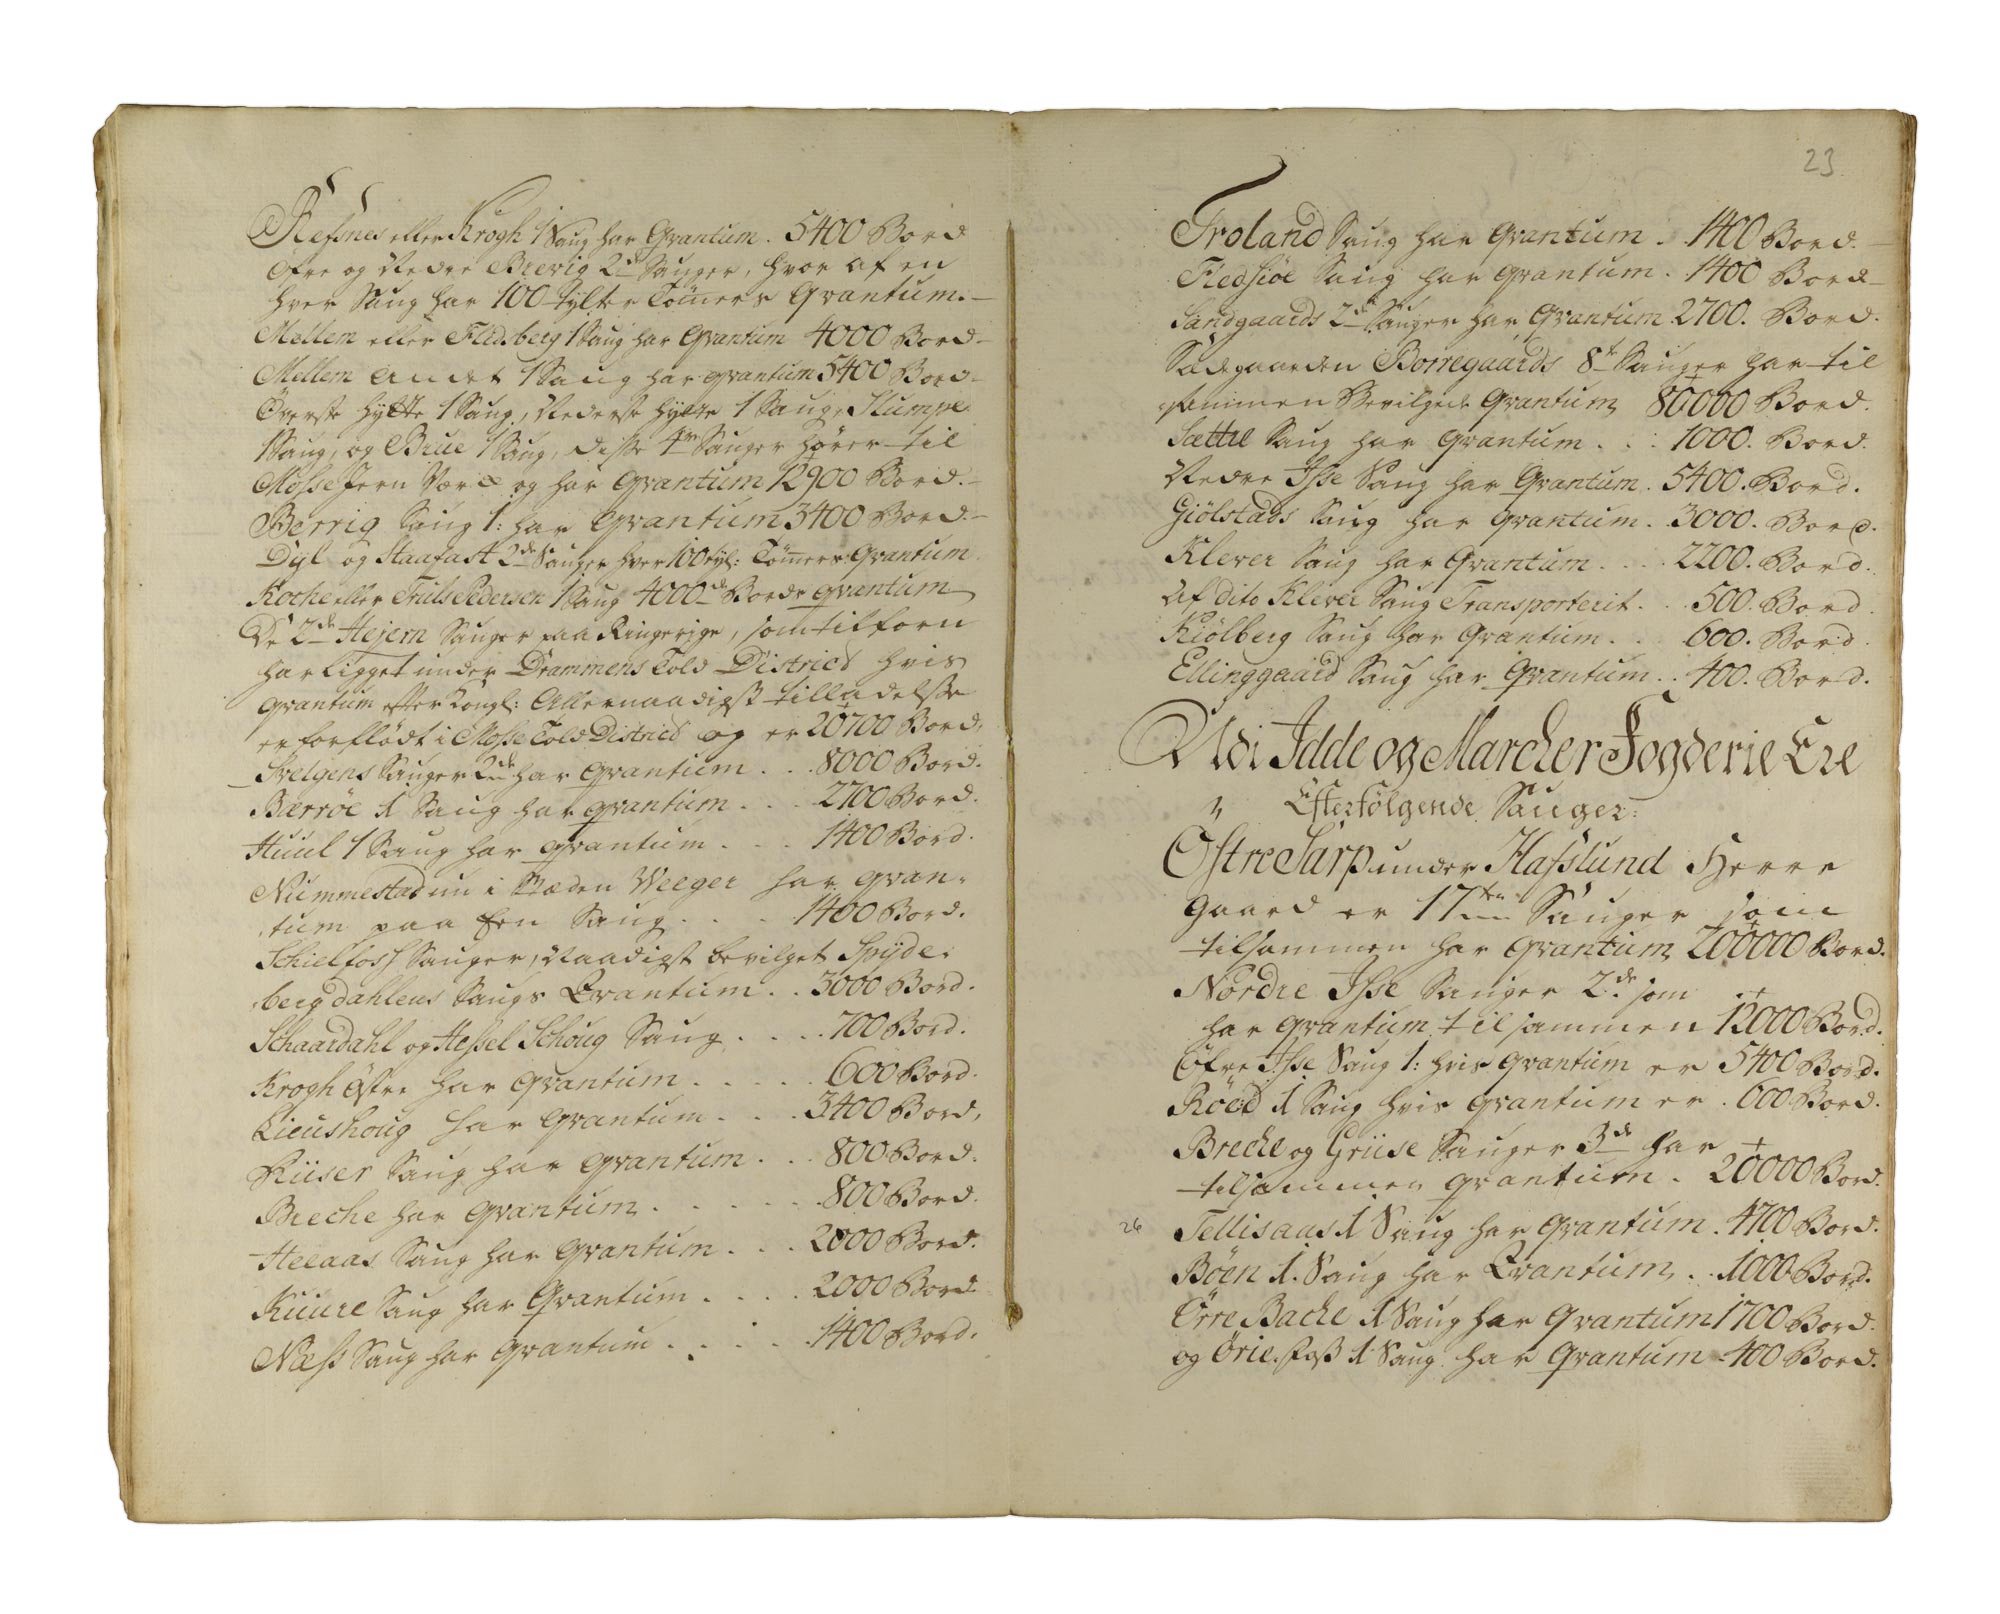 Refsnes eller Krogh 1 Saug har Qvantum . 5400 Bord
Ofre og Nedre Brevig 2de Sauger, hvor af en
hver Saug har 100 Tylter Tömers Qvantum. –
Mellem eller Flidsberg 1 Saug har Qvantum 4000 Bord –
Mellem Andet 1 Saug har qvantum 5400 Bord –
Överste Hytte 1 Saug, Nederste Hytte 1 Saug, Slumpe
1 Saug, og Brue 1 Saug, disse 4re Sauger hörer til
Mosse Jern Værck og har Qvantum 12900 Bord. –
Berrig Saug 1: har Qvantum 3400 Bord. –
Dyl og Staafast 2de Sauger hver 100 tyl: Tömer Qvantum
Kothe eller Truls Pedersen 1 Saug 4000de Borde qvantum
De 2de Hejern Sauger paa Ringerige, som tilforn
har ligget under Drammens Told District hvis
qvantum efter Kongl: Allernaadigst tilladelsse
er forflödt i Mosse Told District og er 20700 Bord.
Svelgens Sauger 2de har Qvantum . . . 8000 Bord.
Bærröe 1 Saug har qvantum . . . 2700 Bord.
Huul 1 Saug har qvantum . . . 1400 Bord.
Nummestad nu i Stæden Weeger har qvan-
tum paa Een Saug . . . . 1400 Bord.
Schielfoss Sauger, Naadigst bevilget Spyde-
berg dahlens Saugs Qvantum . . 3000 Bord.
Schaardahl og Hessel Schoug Saug . . . . 700 Bord.
Krogh Östre har Qvantum . . . . . 600 Bord.
Lieushoug har qvantum . . . 3400 Bord,
Riiser Saug har qvantum . . . 800 Bord.
Breche har qvantum . . . . . 800 Bord.
Heeaas Saug har qvantum . . . 2000 Bord.
Kuure Saug har Qvantum . . . . 2000 Bord
Næss Saug har qvantum . . . . . 1400 Bord.
23
Froland Saug har Qvantum . 1400 Bord. –
Fledsiöe Saug har qvantum . 1400 Bord –
Sandgaards 2de Sauger har Qvantum 2700. Bord.
Sædegaarden Borregaards 8te Sauger har til
sammen Bevilgede Qvantum 80000 Bord.
Sættre Saug har qvantum . . . 1000. Bord.
Nedre Isse Saug har Qvantum . 5400. Bord.
Giölstads Saug har qvantum . 3000. Bord.
Klever Saug har Qvantum . . . . 2200. Bord.
Af dito Klever Saug Transporterit . . . 500. Bord.
Kiölberg Saug har qvantum . . . 600. Bord.
Ellinggaard Saug har Qvantum . . 400. Bord.
Udi Idde og Marcher Fogderie Ere
Efterfölgende Sauger:
Östre Sarp under Hafslund Herre
gaard er 17ten Sauger som
tilsammen har qvantum 200000 Bord.
Nordre Isse Sauger 2de som
har qvantum tilsammen 12000 Bord.
Öfre Isse Saug 1: hvis qvantum er 5400 Bord.
Röed 1 Saug hvis qvantum er . 600. Bord.
Breche og Griise Sauger 3de har
tilsammen qvantum . 20000 Bord.
26
Tellisaas 1 Saug har Qvantum . 4700 Bord.
Böen 1. Saug har Qvantum . . 1000 Bord.
Örre Bache 1 Saug har Qvantum 1700 Bord.
og Örie foss 1 Saug har Qvantum - 400 Bord.